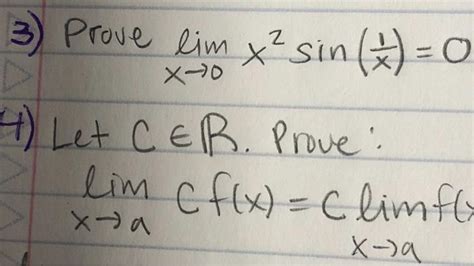 3) Prove lim x→0 x² sin(1/x) = 0
4) Let C ∈ ℝ. Prove:
lim x→a C f(x) = C lim x→a f(x